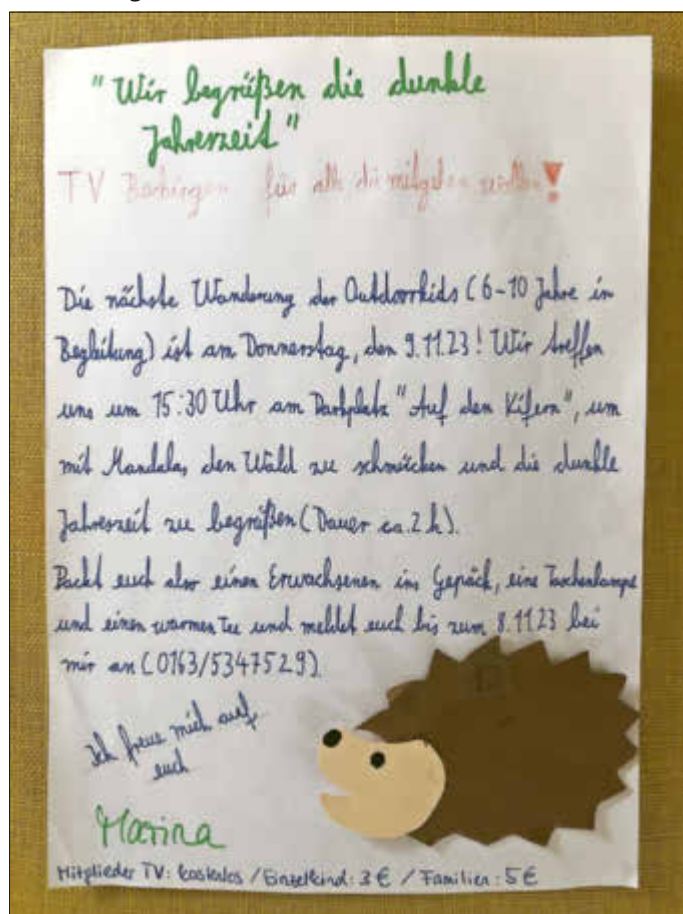 "Wir begrüßen die dunkle
Jahreszeit"
TV Bachingen für alle die mitgehen wollen!
Die nächste Wanderung der Outdoorkids (6-10 Jahre in
Begleitung) ist am Donnerstag, den 9.11.23! Wir treffen
uns um 15:30 Uhr am Parkplatz "Auf den Kifern", um
mit Mandalas den Wald zu schmücken und die dunkle
Jahreszeit zu begrüßen (Dauer ca. 2 h).
Packt euch also einen Erwachsenen ins Gepäck, eine Taschenlampe
und einen warmen Tee und meldet euch bis zum 8.11.23 bei
mir an (0163/5347529)
Ich freue mich auf
euch
Marina
Mitglieder TV: kostenlos / Einzelkind: 3 € / Familien: 5 €